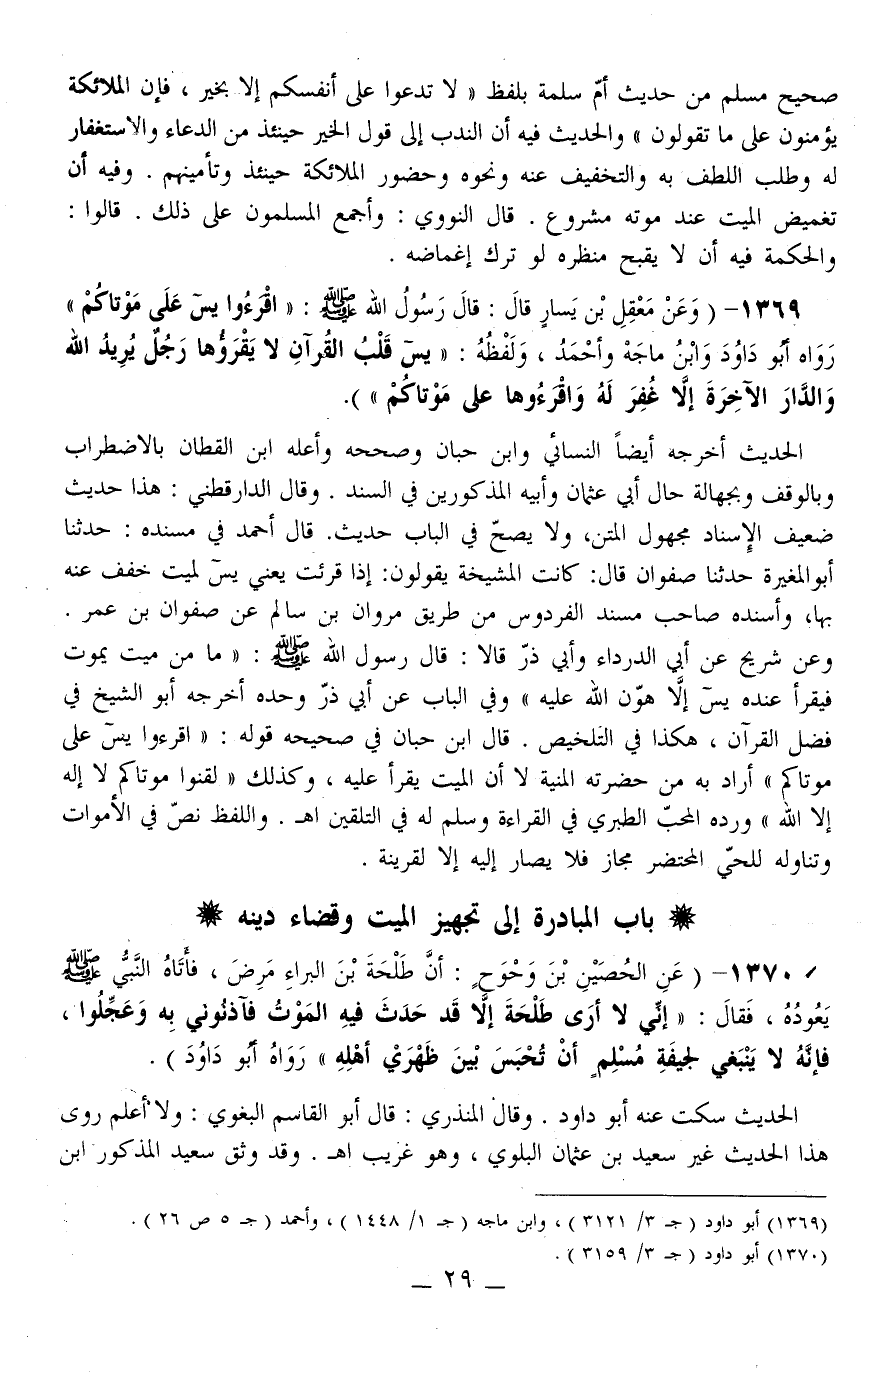 صحيح مسلم من حديث أمّ سلمة بلفظ « لا تدعوا على أنفسكم إلا بخير ، فإن الملائكة
يؤمنون على ما تقولون » والحديث فيه أن الندب إلى قول الخير حينئذ من الدعاء والاستغفار
له وطلب اللطف به والتخفيف عنه ونحوه وحضور الملائكة حينئذ وتأمينهم . وفيه أن
تغميض الميت عند موته مشروع . قال النووي : وأجمع المسلمون على ذلك . قالوا :
والحكمة فيه أن لا يقبح منظره لو ترك إغماضه .
١٣٦٩- ( وَعَنْ مَعْقِلِ بْنِ يَسارٍ قالَ : قالَ رَسُولُ الله ﷺ : « اقْرَءُوا يسَ عَلَى مَوْتاكُمْ »
رَوَاه أبُو دَاوُدَ وَابْنُ ماجَهْ وأحْمَدُ ، وَلَفْظُهُ : « يسَ قَلْبُ القُرآنِ لا يَقْرَؤُها رَجُلٌ يُرِيدُ الله
وَالدَّارَ الآخِرَةَ إلَّا غُفِرَ لَهُ وَاقْرَءُوها على مَوْتاكُمْ » ).
الحديث أخرجه أيضاً النسائي وابن حبان وصححه وأعله ابن القطان بالاضطراب
وبالوقف وبجهالة حال أبي عثمان وأبيه المذكورين في السند . وقال الدارقطني : هذا حديث
ضعيف الإسناد مجهول المتن، ولا يصحّ في الباب حديث. قال أحمد في مسنده : حدثنا
أبوالمغيرة حدثنا صفوان قال: كانت المشيخة يقولون: إذا قرئت يعني يسَ لميت خفف عنه
بها، وأسنده صاحب مسند الفردوس من طريق مروان بن سالم عن صفوان بن عمر .
وعن شريح عن أبي الدرداء وأبي ذرّ قالا : قال رسول الله ﷺ : « ما من ميت يموت
فيقرأ عنده يسَ إلَّا هوّن الله عليه » وفي الباب عن أبي ذرّ وحده أخرجه أبو الشيخ في
فضل القرآن ، هكذا في التلخيص . قال ابن حبان في صحيحه قوله : « اقرءوا يسَ على
موتاكم » أراد به من حضرته المنية لا أن الميت يقرأ عليه ، وكذلك « لقنوا موتاكم لا إله
إلا الله » ورده المحبّ الطبري في القراءة وسلم له في التلقين اهـ . واللفظ نصّ في الأموات
وتناوله للحيّ المحتضر مجاز فلا يصار إليه إلا لقرينة .
باب المبادرة إلى تجهيز الميت وقضاء دينه
١٣٧٠- ( عَنِ الحُصَيْنِ بْنِ وَحْوَحٍ : أنَّ طَلْحَةَ بْنَ البراءِ مَرِضَ ، فأتَاهُ النَّبيُّ ﷺ
يَعُودُهُ ، فَقالَ : « إنِّي لا أرَى طَلْحَةَ إلَّا قَد حَدَثَ فيهِ المَوْتُ فَآذنُوني بِه وَعَجِّلُوا ،
فإنَّهُ لا يَنْبَغي لجيفَةِ مُسْلِمٍ أنْ تُحْبَسَ بْينَ ظَهْرَيْ أهْلِهِ » رَوَاهُ أبُو دَاوُدَ ) .
الحديث سكت عنه أبو داود . وقال المنذري : قال أبو القاسم البغوي : ولا أعلم روى
هذا الحديث غير سعيد بن عثمان البلوي ، وهو غريب اهـ . وقد وثق سعيد المذكور ابن
(١٣٦٩) أبو داود ( جـ ٣/ ٣١٢١ ) ، وابن ماجه ( جـ ١/ ١٤٤٨ ) ، وأحمد ( جـ ٥ ص ٢٦ ) .
(١٣٧٠) أبو داود ( جـ ٣/ ٣١٥٩ ) .
ــ ٢٩ ــ